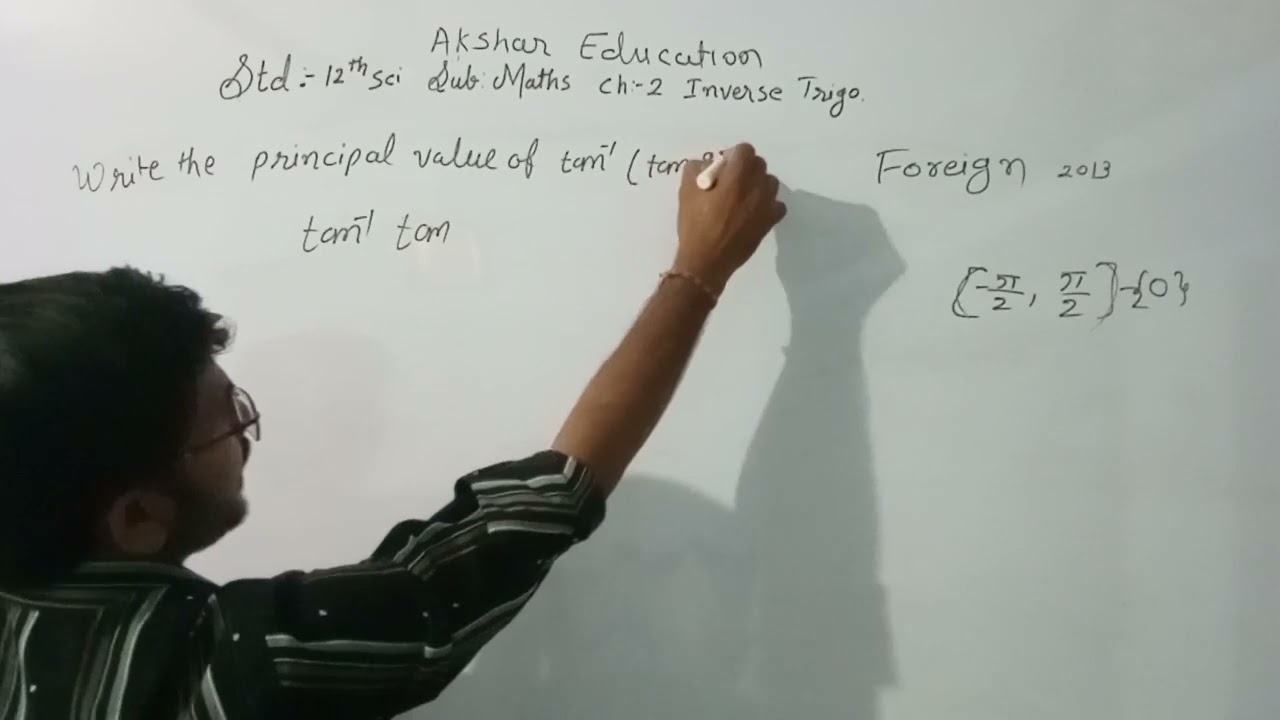 Akshar Education
Std:- 12th sci Sub: Maths Ch:-2 Inverse Trigo.
Write the principal value of tan⁻¹ (tan Foreign 2013
tan⁻¹ tan
[-π/2, π/2]-{0}